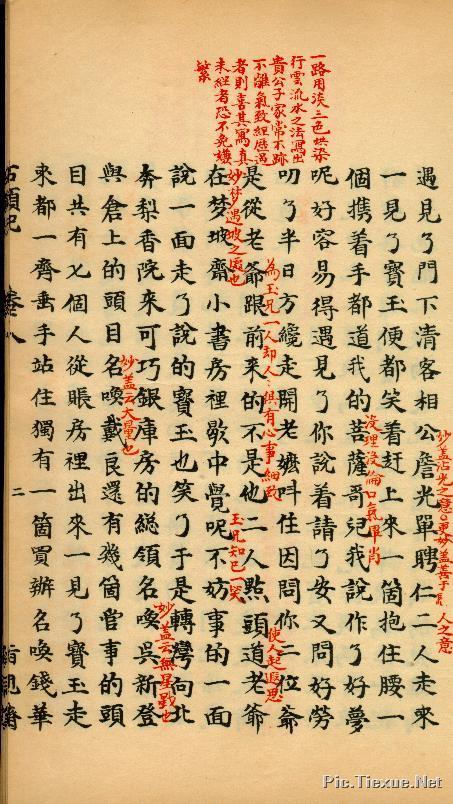 一路用淡三色烘染
行雲流水之法寫出
貴公子家常不跡
不離氣致經歷過
者則喜其寫真
未經者恐不免嫌
繁
遇見了門下清客相公詹光單聘仁二人走來
妙蓋沾光之意
更妙蓋善于
人之意
一見了寶玉便都笑着赶上來一箇抱住腰一
個携着手都道我的菩薩哥兒我說作了好夢
沒理沒倫口氣畢肖
呢好容易得遇見了你說着請了安又問好勞
叨了半日方纔走開老嬤呌住因問你二位爺
為玉兄一人却人〻俱有心事細致
是從老爺跟前来的不是他二人點頭道老爺
使人起遐思
在梦坡齋小書房裡歇中覺呢不妨事的一面
妙梦遇坡之處也
玉兄知己一笑
說一面走了說的寶玉也笑了于是轉彎向北
奔梨香院来可巧銀庫房的総領名喚吳新登
妙蓋云無星戥也
與倉上的頭目名喚戴良還有幾箇管事的頭
妙蓋云大量也
目共有七個人從賬房裡出來一見了寶玉走
來都一齊垂手站住獨有一箇買辦名喚錢華
石頭記 卷八 二 脂硯齋
Pic.Tiexue.Net